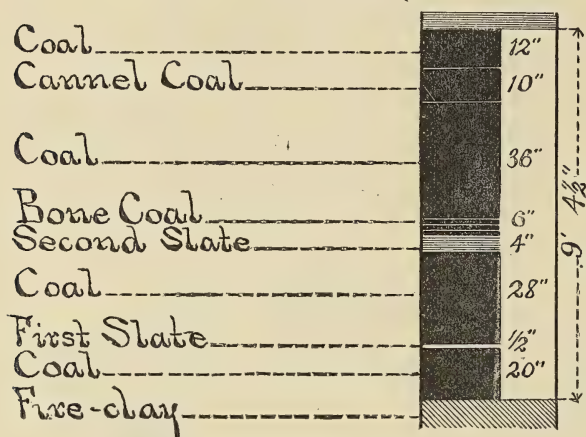 Coal 12"
Cannel Coal 10"
Coal 36"
Bone Coal 6"
Second Slate 4"
Coal 28"
First Slate ½"
Coal 20"
Fire-clay
9' 4½"